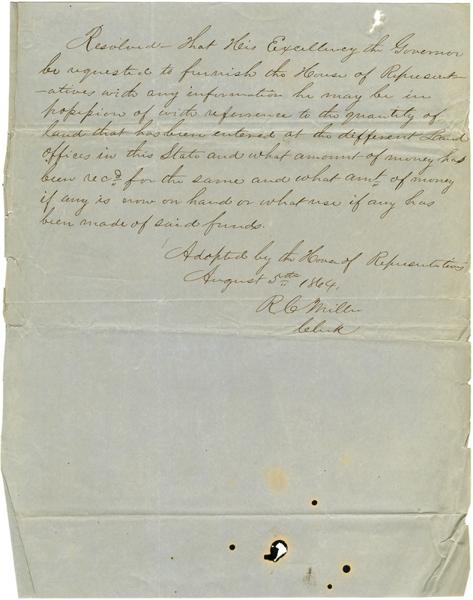 Resolved - That His Excellency the Governor
be requested to furnish the House of Represent-
-atives with any information he may be in
possession of with reference to the quantity of
Land that has been entered at the different Land
offices in this State and what amount of money has
been recd. for the same and what amt. of money
if any is now on hand or what use if any has
been made of said funds.
Adopted by the House of Representatives
August 1864.
R C Miller
Clerk